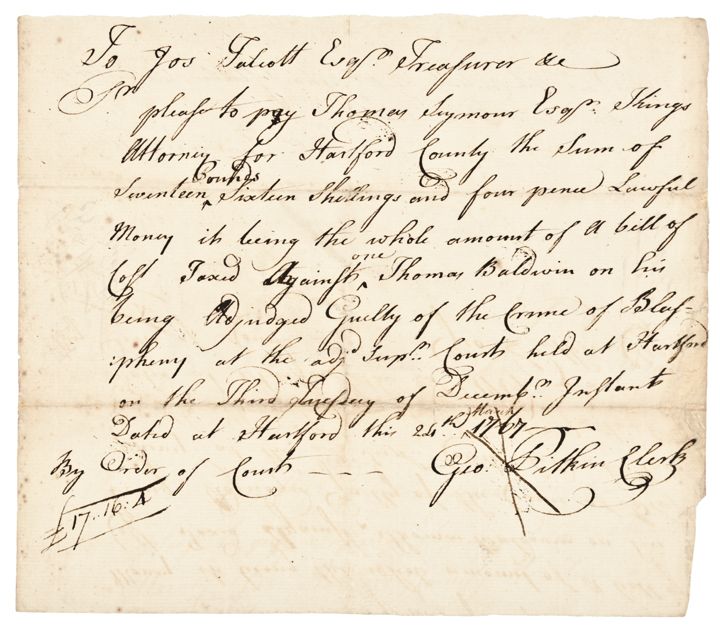 To Jos Talcott Esqr. Treasurer &c
Sr
please to pay Thomas Seymour Esqr. Kings
Attorney for Hartford County the Sum of
Seventeen ^Pounds Sixteen Shillings and four pence Lawful
Money it being the whole amount of A bill of
Cost Taxed Against ^one Thomas Baldwin on his
being Adjudged Guilty of the Crime of Blas-
:phemy at the adjd Supr. Court held at Hartford
on the Third Tuesday of Decembr. Instant
Dated at Hartford this 24th March 1767
By Order of Court - - - Geo: Pitkin Clerk
£17..16:4